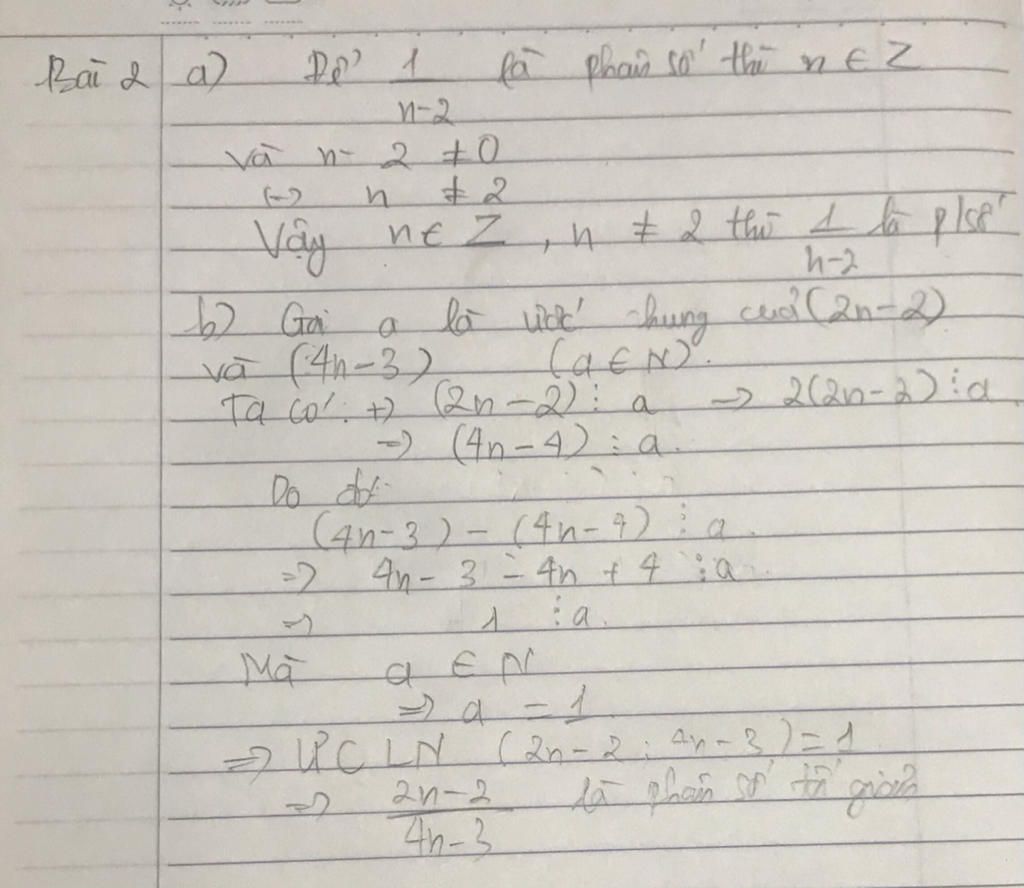 Bài 2 a) Để 1/(n-2) là phân số thì n ∈ Z
và n - 2 ≠ 0
<-> n ≠ 2
Vậy n ∈ Z, n ≠ 2 thì 1/(n-2) là p/số
b) Gọi a là ước chung của (2n-2)
và (4n-3) (a ∈ N).
Ta có: +) (2n-2) ⋮ a -> 2(2n-2) ⋮ a
=> (4n-4) ⋮ a.
Do đó:
(4n-3) - (4n-4) ⋮ a.
=> 4n - 3 - 4n + 4 ⋮ a.
=> 1 ⋮ a.
Mà a ∈ N
=> a = 1
=> ƯCLN (2n-2; 4n-3) = 1
=> (2n-2)/(4n-3) là phân số tối giản